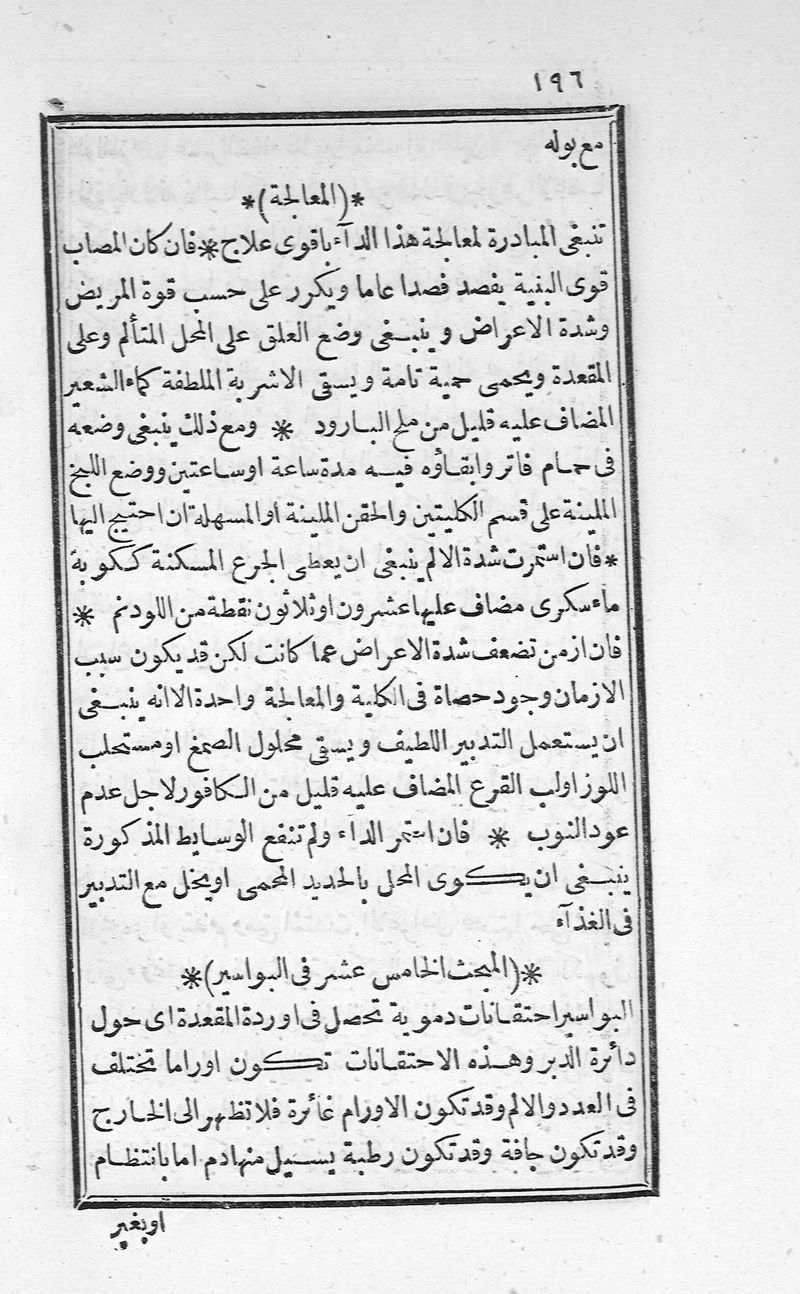 ١٩٦
مع بوله
*(المعالجة)*
تنبغى المبادرة لمعالجة هذا الدآء باقوى علاج * فان كان المصاب
قوى البنية يفصد فصدا عاما ويكرر على حسب قوة المريض
وشدة الاعراض وينبغى وضع العلق على المحل المتألم وعلى
المقعدة ويحمى حمية تامة ويسقى الاشربة الملطفة كماء الشعير
المضاف عليه قليل من ملح البارود * ومع ذلك ينبغى وضعه
فى حمام فاتر وابقاؤه فيه مدة ساعة او ساعتين ووضع اللبخ
الملينة على قسم الكليتين والحقن الملينة أو المسهلة ان احتيج اليها
* فان استمرت شدة الالم ينبغى ان يعطى الجرع المسكنة ككوبة
ماء سكرى مضاف عليها عشرون او ثلاثون نقطة من اللودنم *
فان ازمن تضعف شدة الاعراض عما كانت لكن قد يكون سبب
الازمان وجود حصاة فى الكلية والمعالجة واحدة الا انه ينبغى
ان يستعمل التدبير اللطيف ويسقى محلول الصمغ او مستحلب
اللوز اولب القرع المضاف عليه قليل من الكافور لاجل عدم
عود النوب * فان استمر الدآء ولم تنفع الوسايط المذكورة
ينبغى ان يكوى المحل بالحديد المحمى او يخل مع التدبير
فى الغذآء
*(المبحث الخامس عشر فى البواسير)*
البواسير احتقانات دموية تحصل فى اوردة المقعدة اى حول
دائرة الدبر وهذه الاحتقانات تكون اوراما تختلف
فى العدد والالم وقد تكون الاورام غائرة فلا تظهر الى الخارج
وقد تكون جافة وقد تكون رطبة يسيل منها دم اما بانتظام
اوبغير